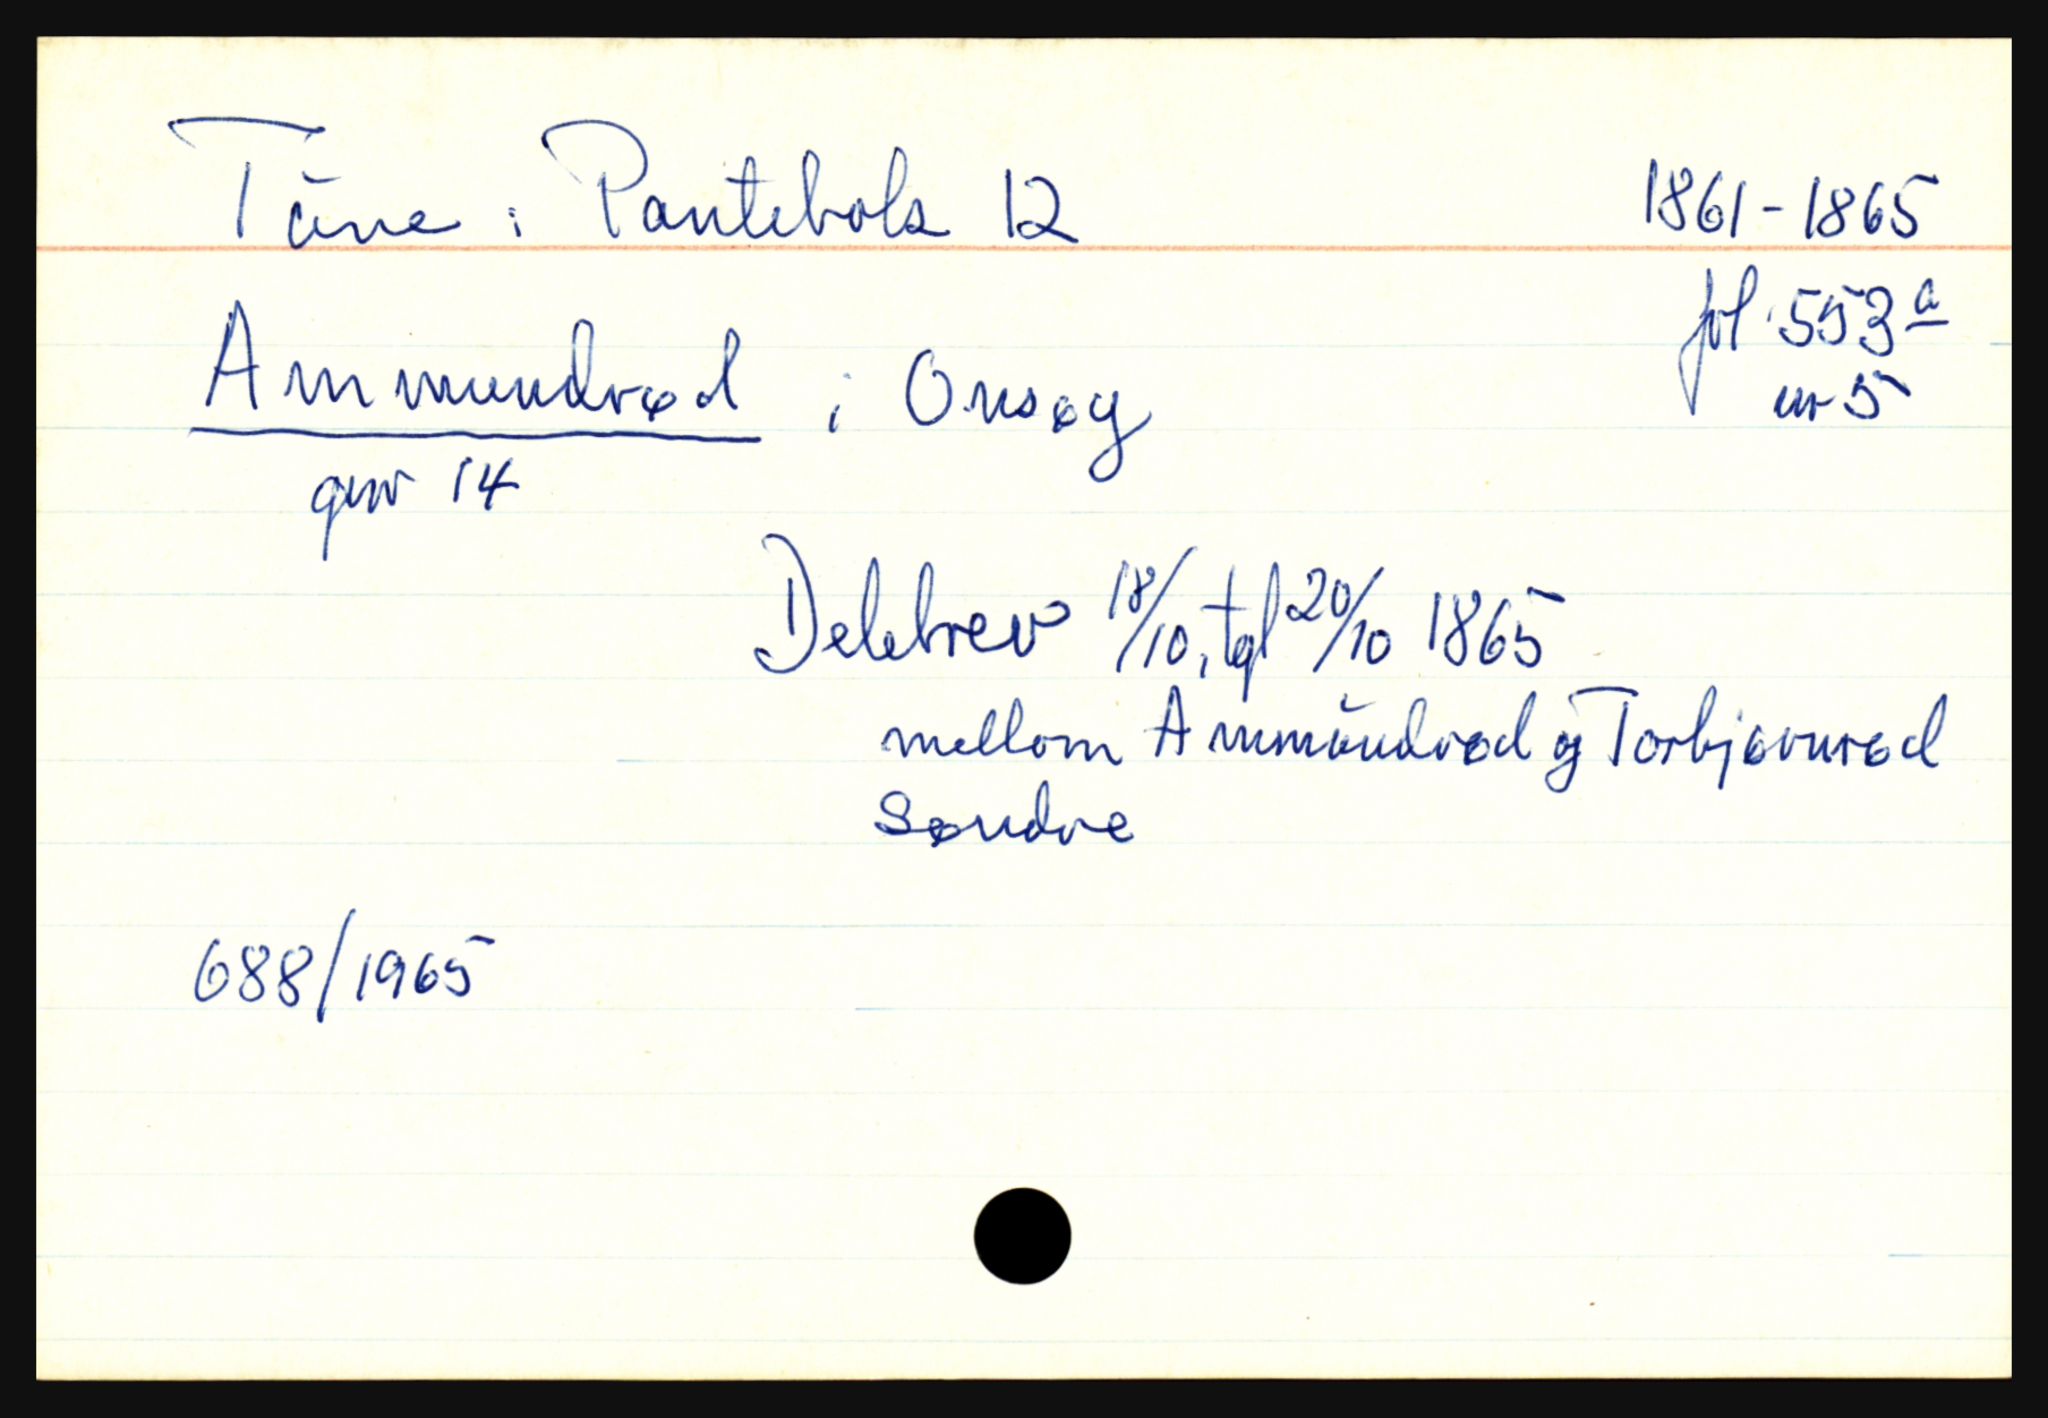 Tune : Pantebok 12
1861-1865
fol. 553 a
nr 5
Ammundrød i Onsøy
gnr 14
Delebrev 18/10, tgl 20/10 1865
mellom Ammundrød og Torbjørnrød
Søndre
688/1965